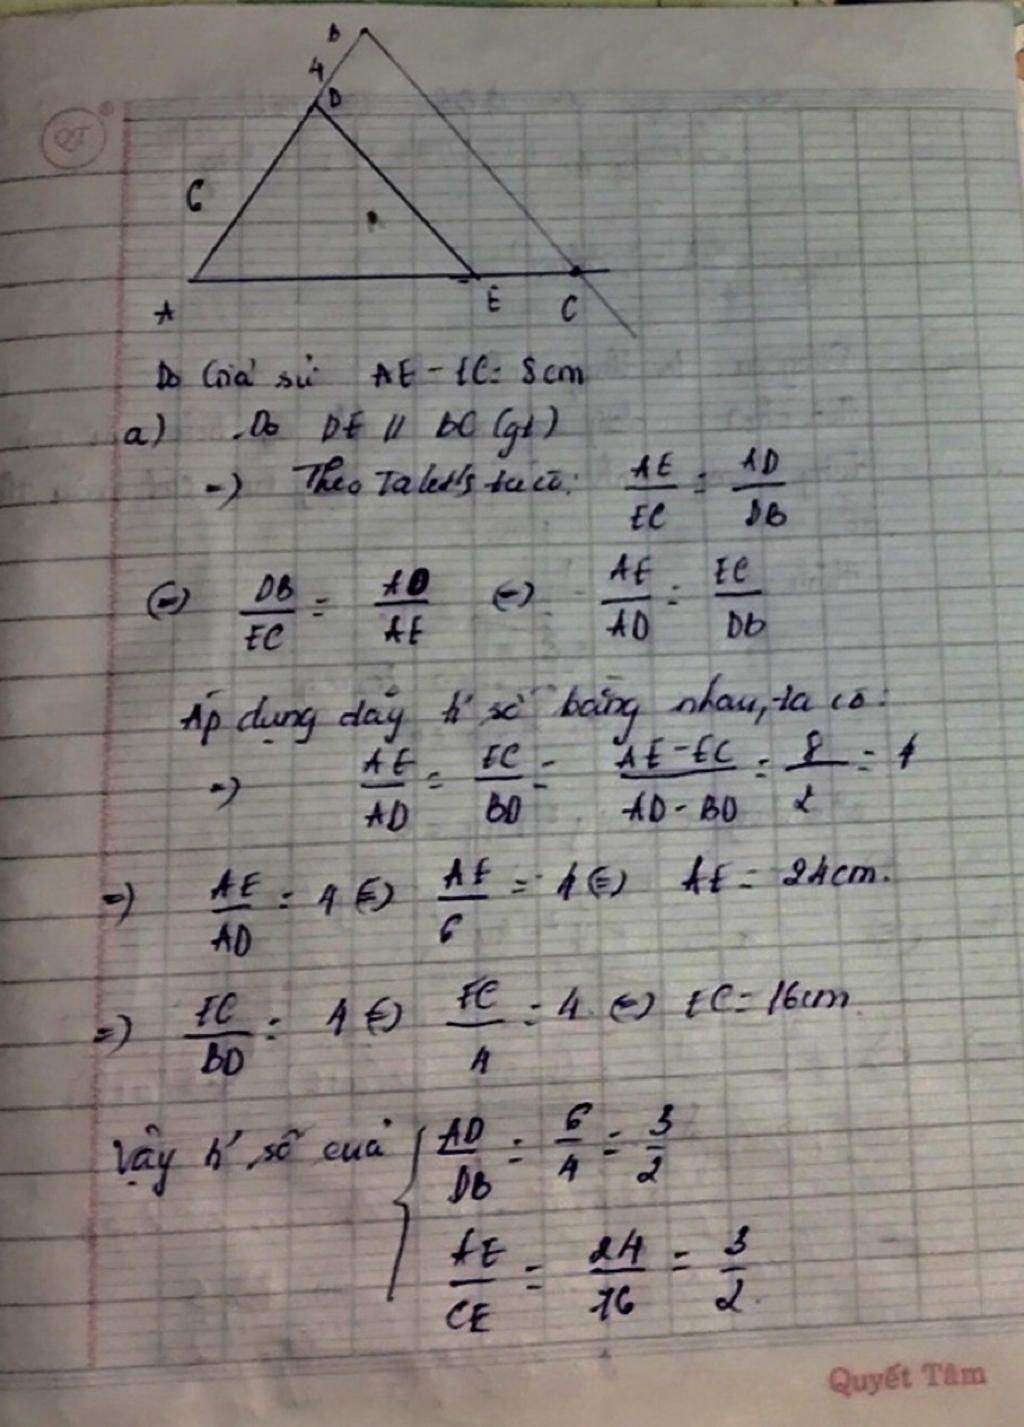 B
4
D
QT
6
A
E
C
Do Giả sử AE - EC = 8cm
a) Do DE // BC (gt)
=> Theo Talet's ta có: AE/EC = AD/DB
(=) DB/EC = AD/AE (=) AE/AD = EC/DB
Áp dụng dãy tỉ số bằng nhau, ta có:
=> AE/AD = EC/BD = AE-EC/AD-BD = 8/2 = 4
=> AE/AD = 4 (=) AE/6 = 4 (=) AE = 24cm.
=> EC/BD = 4 (=) EC/4 = 4 (=) EC = 16cm
Vậy tỉ số của { AD/DB = 6/4 = 3/2
AE/CE = 24/16 = 3/2
Quyết Tâm